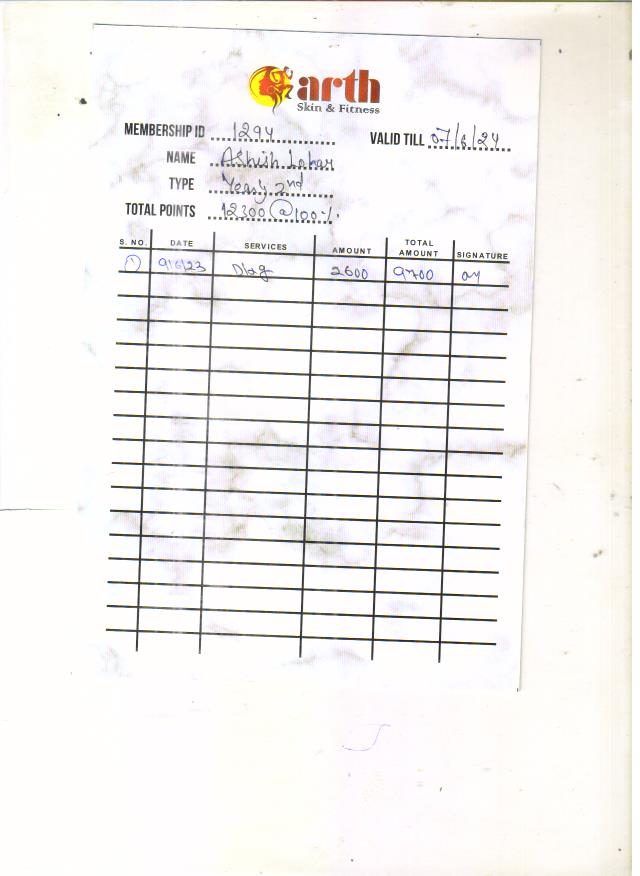 arth
Skin & Fitness
MEMBERSHIP ID 1294 VALID TILL 07/6/24
NAME Ashish Lohar
TYPE Yearly 2nd
TOTAL POINTS 12300 @ 100%.
S. NO. DATE SERVICES AMOUNT TOTAL AMOUNT SIGNATURE
1 9/6/23 2600 9700